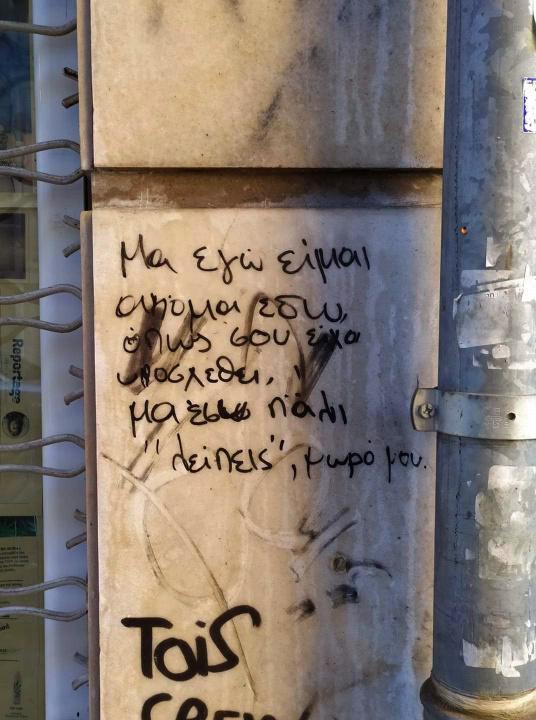 Μα εγώ είμαι
ακόμα εδώ,
όπως σου είχα
υποσχεθεί,
μα εσύ πάλι
"λείπεις", μωρό μου.
Tois
CREW
Reportage